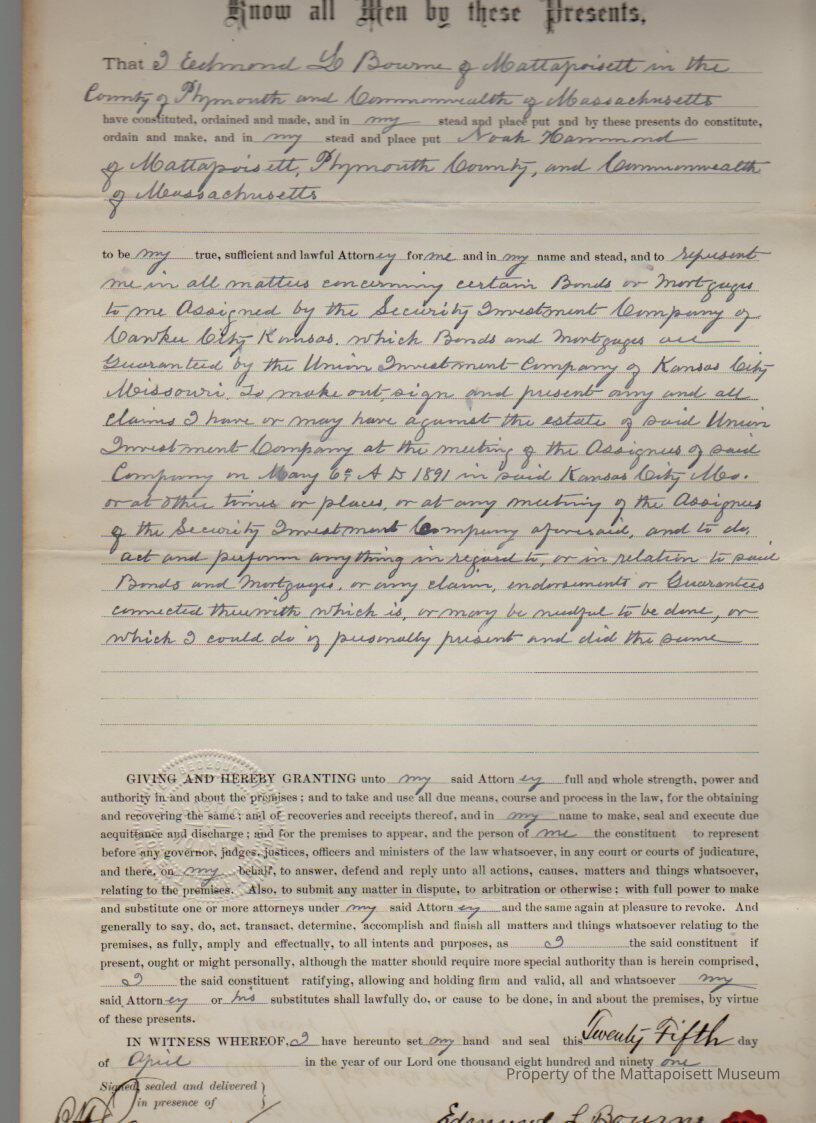 Know all Men by these Presents,
That I Edmond L Bourne of Mattapoisett in the
County of Plymouth and Commonwealth of Massachusetts
have constituted, ordained and made, and in my stead and place put and by these presents do constitute,
ordain and make, and in my stead and place put Noah Hammond
of Mattapoisett, Plymouth County, and Commonwealth
of Massachusetts
to be my true, sufficient and lawful Attorney for me and in my name and stead, and to represent
me in all matters concerning certain Bonds or Mortgages
to me Assigned by the Security Investment Company of
Cawker City Kansas. which Bonds and Mortgages are
Guaranteed by the Union Investment Company of Kansas City
Missouri. To make out, sign and present any and all
claims I have or may have against the estate of said Union
Investment Company at the meeting of the Assignees of said
Company on May 6th A D 1891 in said Kansas City Mo.
or at other times or places, or at any meeting of the Assignees
of the Security Investment Company aforesaid, and to do,
act and perform anything in regard to, or in relation to said
Bonds and Mortgages, or any claim, endorsements or Guarantees
connected therewith which is, or may be needful to be done, or
which I could do if personally present and did the same
GIVING AND HEREBY GRANTING unto my said Attorney full and whole strength, power and
authority in and about the premises; and to take and use all due means, course and process in the law, for the obtaining
and recovering the same; and of recoveries and receipts thereof, and in my name to make, seal and execute due
acquittance and discharge; and for the premises to appear, and the person of me the constituent to represent
before any governor, judges, justices, officers and ministers of the law whatsoever, in any court or courts of judicature,
and there, on my behalf, to answer, defend and reply unto all actions, causes, matters and things whatsoever,
relating to the premises. Also, to submit any matter in dispute, to arbitration or otherwise; with full power to make
and substitute one or more attorneys under my said Attorney and the same again at pleasure to revoke. And
generally to say, do, act, transact, determine, accomplish and finish all matters and things whatsoever relating to the
premises, as fully, amply and effectually, to all intents and purposes, as I the said constituent if
present, ought or might personally, although the matter should require more special authority than is herein comprised,
I the said constituent ratifying, allowing and holding firm and valid, all and whatsoever my
said Attorney or his substitutes shall lawfully do, or cause to be done, in and about the premises, by virtue
of these presents.
IN WITNESS WHEREOF, I have hereunto set my hand and seal this Twenty Fifth day
of April in the year of our Lord one thousand eight hundred and ninety one
Property of the Mattapoisett Museum
Signed, sealed and delivered
in presence of
Edmund L Bourne